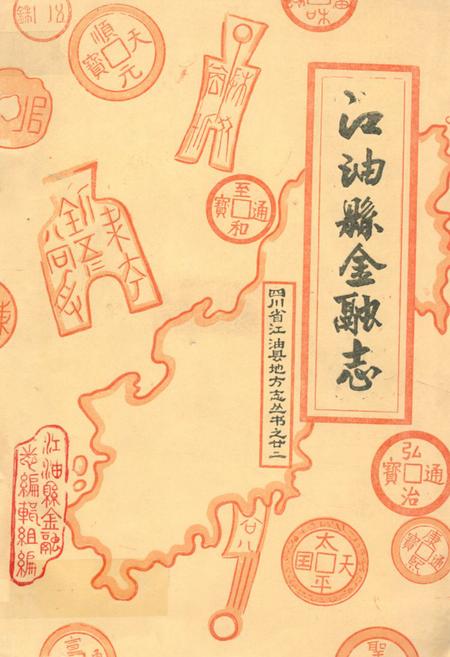 江油縣金融志
四川省江油县地方志丛书之廿二
江油縣金融
志編輯組編
順天元寶
至和通寶
弘治通寶
太平天国
康熙通寶
廿八